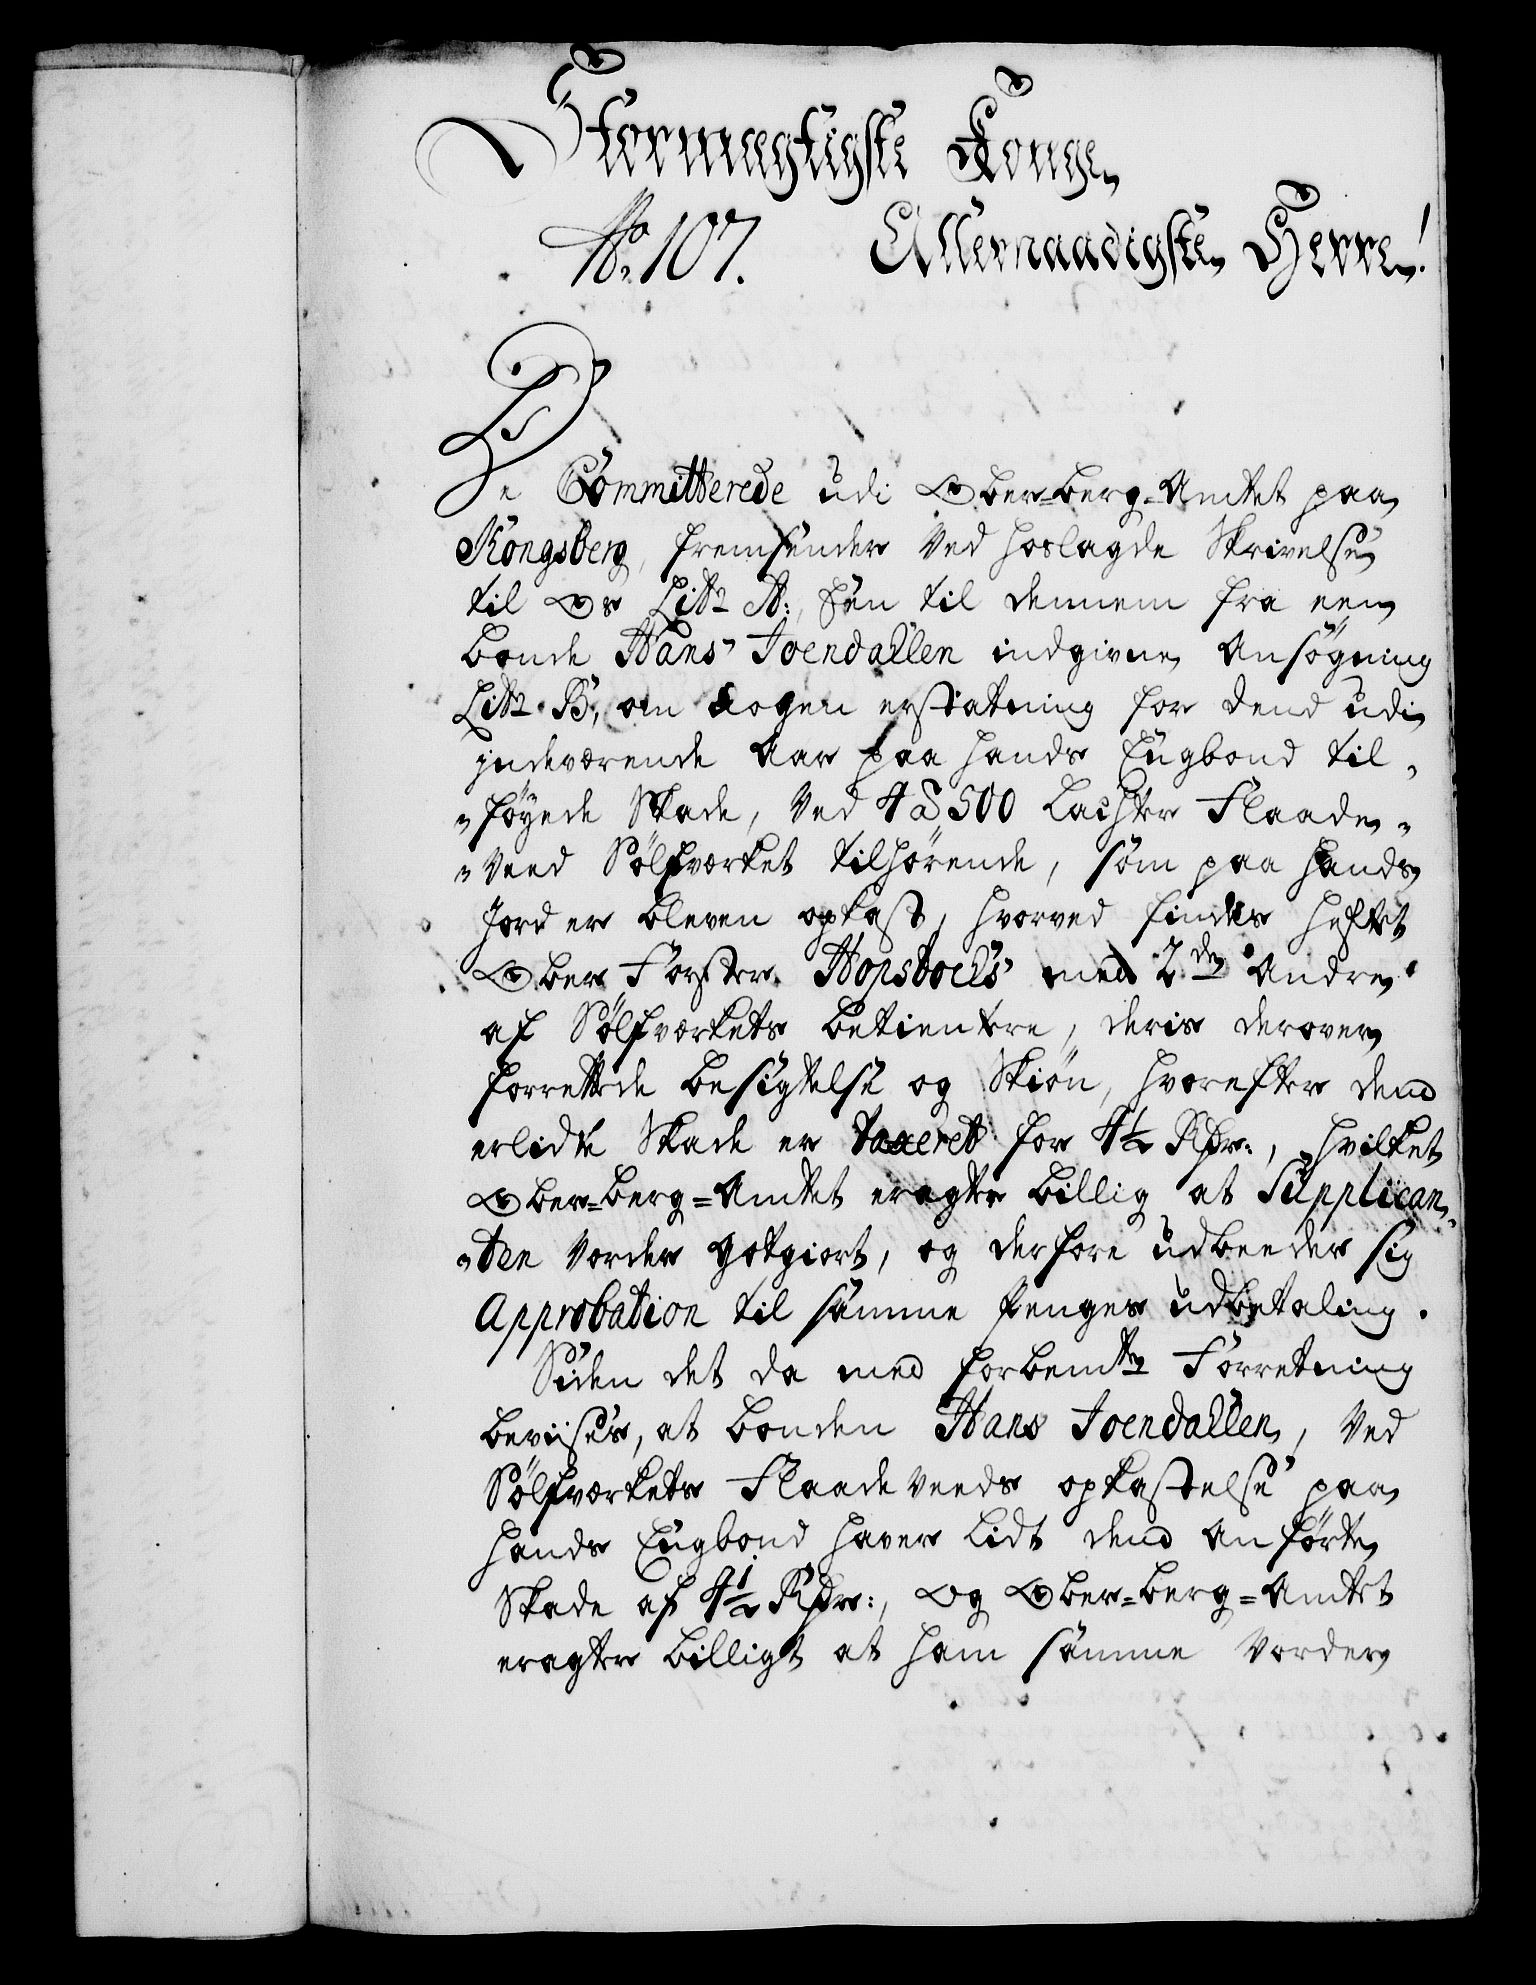 Stormægtigste Konge,
No. 107. Allernaadigste Herre!
De Committerede udi Ober-berg-Amtet paa
Kongsberg, fremsender ved hoslagde Skrivelse
til Os Litr A:, een til dennem fra een
bonde Hans Joendallen indgiven Ansøgning
Litr B, om nogen erstatning for dend udi
jndeværende Aar paa hands Eugbond til-
-føyede Skade, ved 4 à 500 Lachter Flaade-
-veed Sølfværket tilhørende, som paa hands
Jord er bleven opkast, hvorved findes heftet
Ober Førster Hopstocks med 2de Andre
af Sølfværkets betientere, deris derover
forrettede besigtelse og Skiøn, hvorefter dend
erlidte Skade er taxeret for 4½ Rdr:, hvilket
Ober-berg-Amtet eragter billig at Supplican-
-ten vorder gotgiort, og derfore udbeeder sig
Approbation til samme Penges udbetaling.
Siden det da med forbemte Forretning
beviises, at bonden Hans Joendallen, ved
Sølfværkets Flaadeveeds opkastelse paa
hands Eugbond haver lidt dend anførte
Skade af 4½ Rdr:, og Ober-berg-Amtet
eragter billigt at ham samme vorder